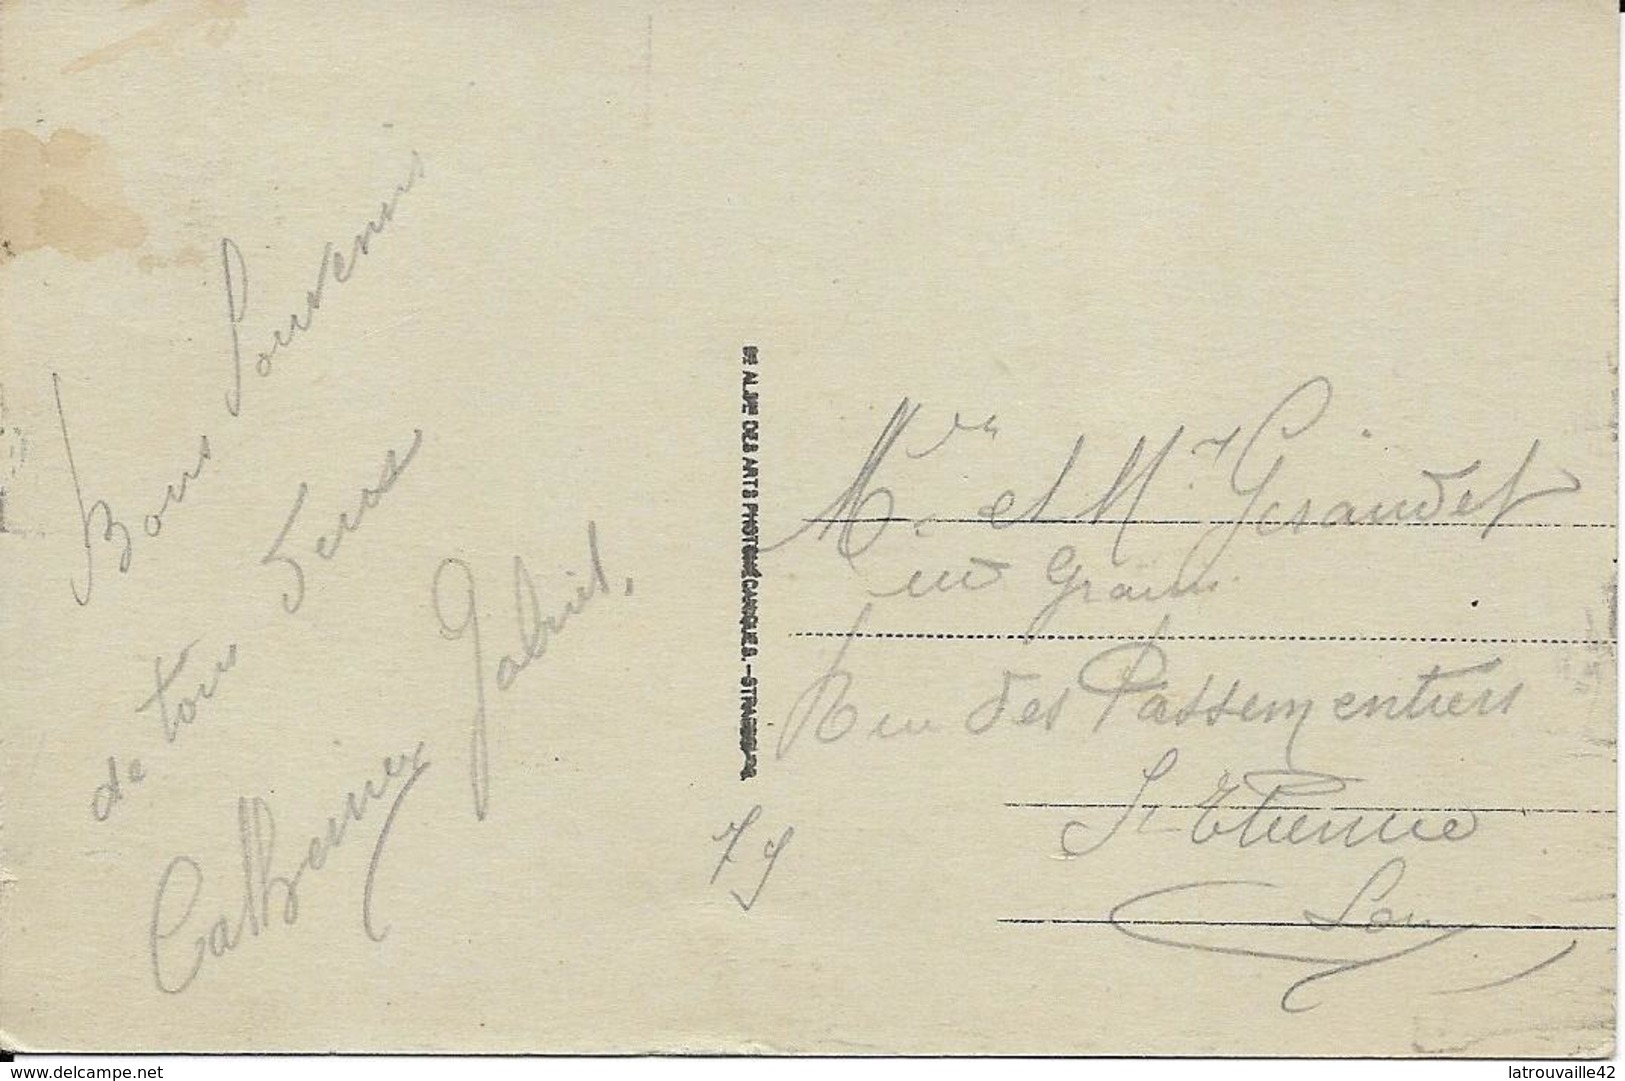 Bons Souvenirs
de tous
Catherine Gabriel.
Sté ALSNE DES ARTS PHOTOMÉCANIQUES.—STRASBOURG
79
et
Grains
Rue des Passementiers
St Etienne
Loire
delcampe.net
latrouvaille42